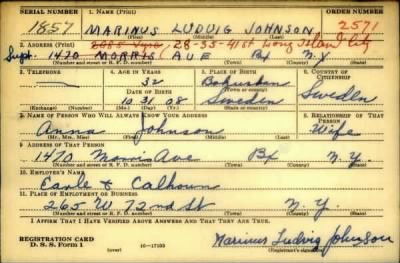 SERIAL NUMBER 1. NAME (Print) ORDER NUMBER
1857 MARINUS LUDVIG JOHNSON 2571
2. ADDRESS (Print) 28-35-41 St Long Island City
1470 MORRIS AVE Bx N.Y
(Number and street or R. F. D. number) (Town) (County) (State)
3. TELEPHONE 4. AGE IN YEARS 5. PLACE OF BIRTH 6. COUNTRY OF CITIZENSHIP
32 Bohuslan
(Town or county)
DATE OF BIRTH
10 31 08 Sweden Sweden
(Exchange) (Number) (Mo.) (Day) (Yr.) (State or country)
7. NAME OF PERSON WHO WILL ALWAYS KNOW YOUR ADDRESS 8. RELATIONSHIP OF THAT PERSON
Anna Johnson Wife
(Mr., Mrs., Miss) (First) (Middle) (Last)
9. ADDRESS OF THAT PERSON
1470 Morris Ave Bx N.Y.
(Number and street or R. F. D. number) (Town) (County) (State)
10. EMPLOYER'S NAME
Earle & Calhoun
11. PLACE OF EMPLOYMENT OR BUSINESS
265 W 72nd St N.Y.
(Number and street or R. F. D. number) (Town) (County) (State)
I AFFIRM THAT I HAVE VERIFIED ABOVE ANSWERS AND THAT THEY ARE TRUE.
REGISTRATION CARD
D. S. S. Form 1 (over) 16-17105 Marinus Ludvig Johnson
(Registrant's signature)